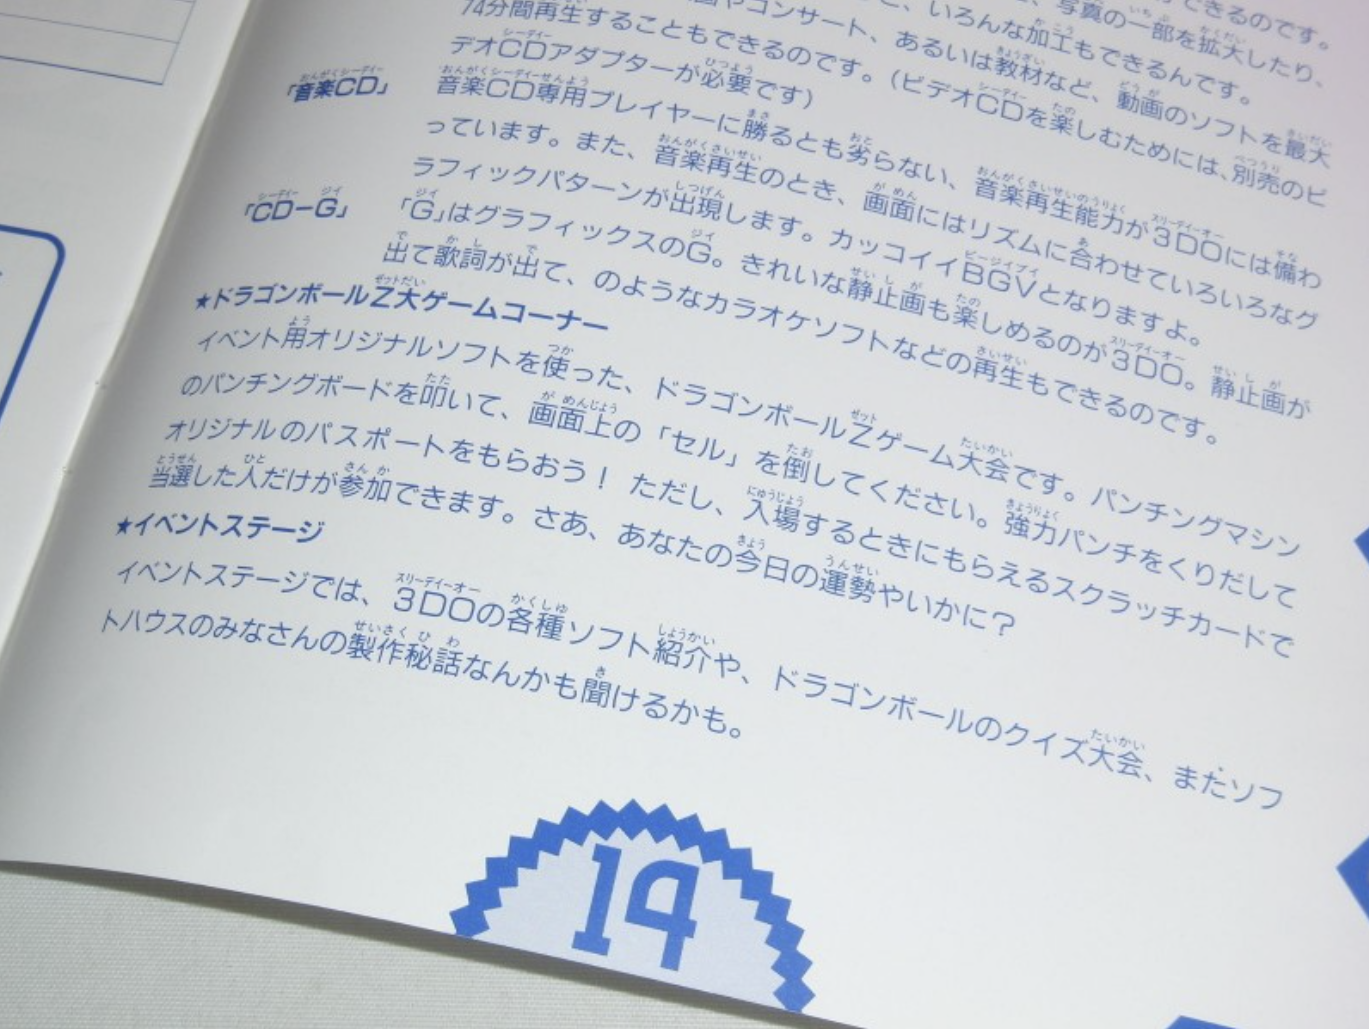 できるのです。
、写真の一部を拡大したり、
、いろんな加工もできるんです。
やコンサート、あるいは教材など、動画のソフトを最大
74分間再生することもできるのです。(ビデオCDを楽しむためには、別売のビ
デオCDアダプターが必要です)
「音楽CD」 音楽CD専用プレイヤーに勝るとも劣らない、音楽再生能力が3DOには備わ
っています。また、音楽再生のとき、画面にはリズムに合わせていろいろなグ
ラフィックパターンが出現します。カッコイイBGVとなりますよ。
「CD−G」 「G」はグラフィックスのG。きれいな静止画も楽しめるのが3DO。静止画が
出て歌詞が出て、のようなカラオケソフトなどの再生もできるのです。
★ドラゴンボールZ大ゲームコーナー
イベント用オリジナルソフトを使った、ドラゴンボールZゲーム大会です。パンチングマシン
のパンチングボードを叩いて、画面上の「セル」を倒してください。強力パンチをくりだして
オリジナルのパスポートをもらおう! ただし、入場するときにもらえるスクラッチカードで
当選した人だけが参加できます。さあ、あなたの今日の運勢やいかに?
★イベントステージ
イベントステージでは、3DOの各種ソフト紹介や、ドラゴンボールのクイズ大会、またソフ
トハウスのみなさんの製作秘話なんかも聞けるかも。
14